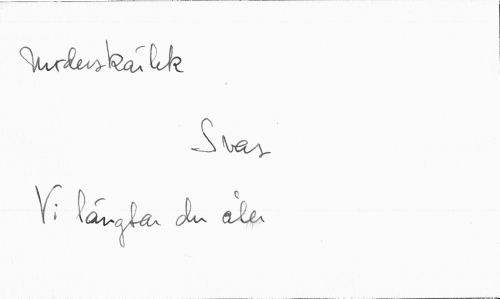 Moderskärlek
Svar
Vi längtar du åter